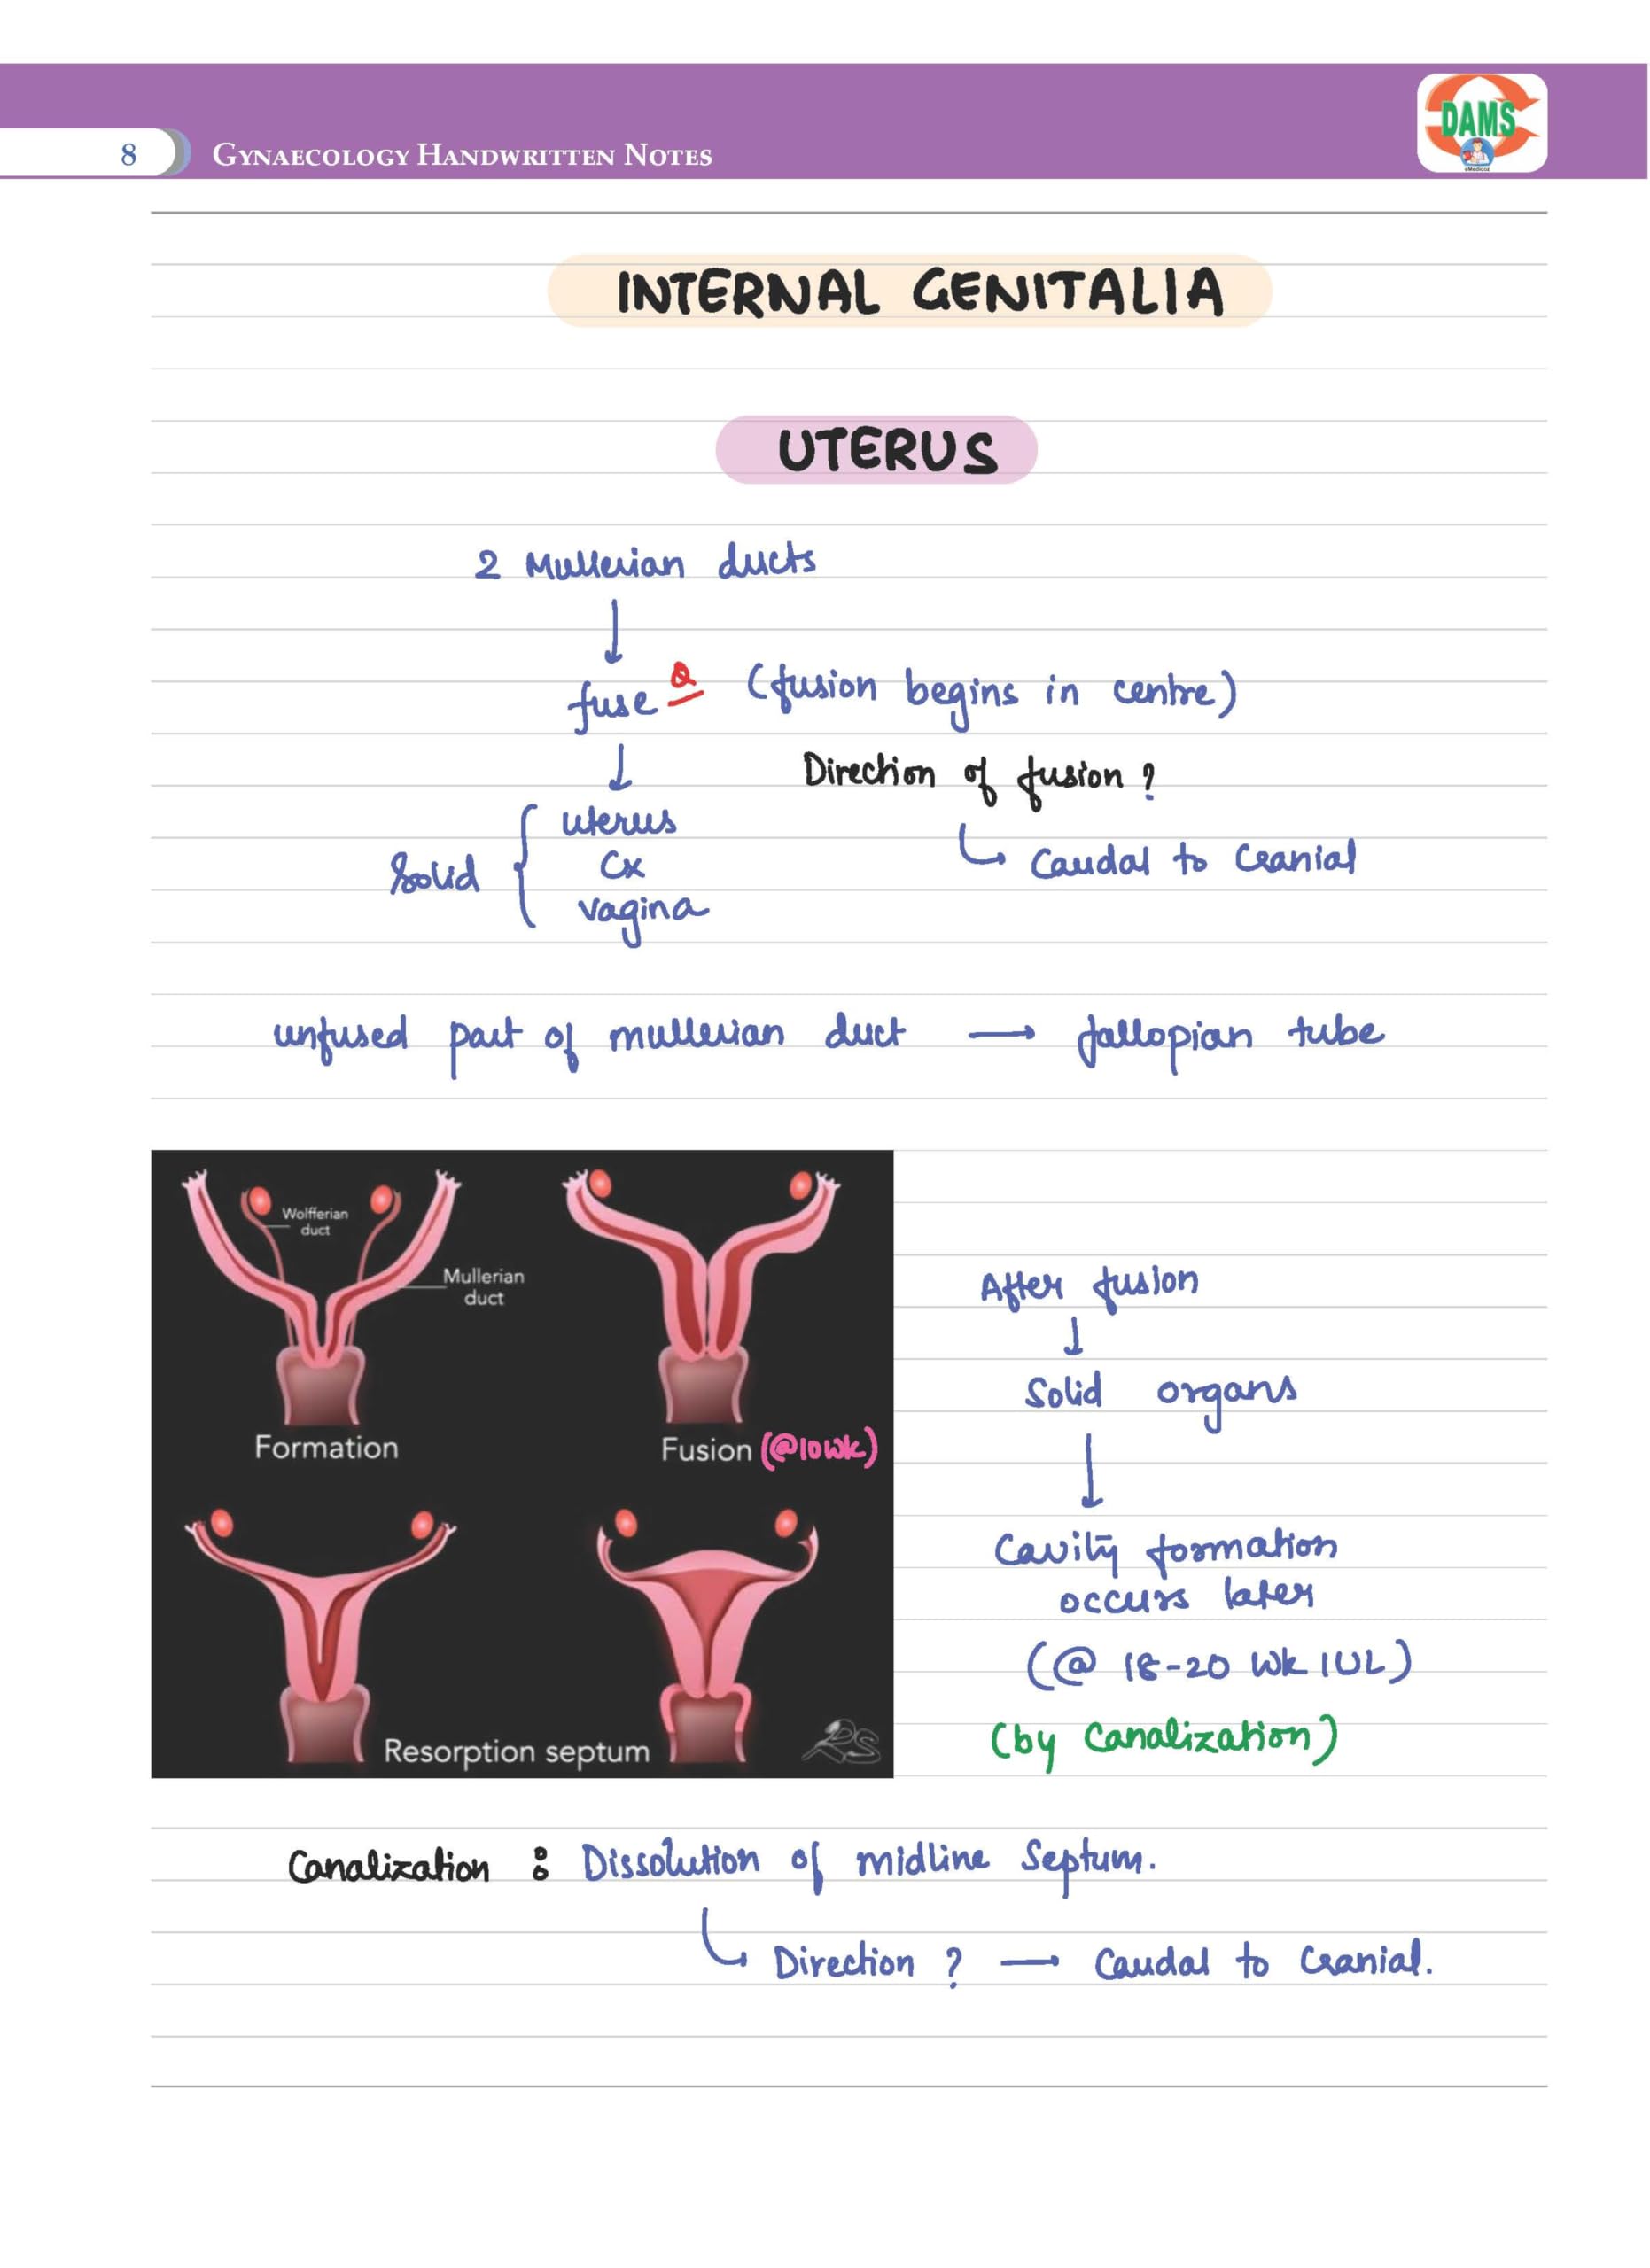 8 GYNAECOLOGY HANDWRITTEN NOTES
DAMS
eMedicoz
INTERNAL GENITALIA
UTERUS
2 Mullerian ducts
↓
fuse Q (fusion begins in centre)
↓
Direction of fusion ?
↳ Caudal to Cranial
Solid { uterus
Cx
vagina
unfused part of mullerian duct → fallopian tube
Wolfferian
duct
Mullerian
duct
Formation
Fusion (@10wk)
Resorption septum
RS
After fusion
↓
Solid organs
↓
Cavity formation
occurs later
(@ 18-20 wk IUL)
(by Canalization)
Canalization : Dissolution of midline Septum.
↳ Direction ? → Caudal to Cranial.